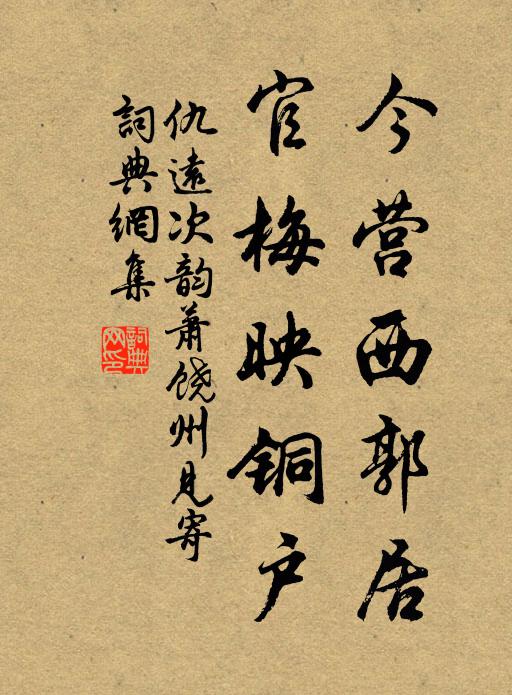 今营西郭居
官梅映铜户
仇遠次韵蕭饶州見寄
詞典網集
詞典网印